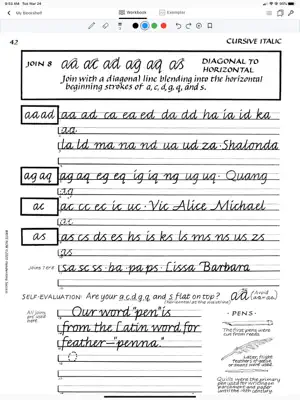 9:53 AM Tue Mar 24
My Bookshelf
Workbook
Examples
42
CURSIVE ITALIC
JOIN 8
aa ac ad ag aq as
DIAGONAL TO HORIZONTAL
Join with a diagonal line blending into the horizontal
beginning strokes of a, c, d, g, q, and s.
aa ad
aa ad ca ea ed da dd ha ia id ka
aa
la ld ma na nd ua ud za · Shalonda
ag aq
ag aq eg eq ig iq ng ug uq · Quang
ag
ac
ac cc ec ic uc · Vic Alice Michael
ac
as
as cs ds es hs is ks ls ms ns us zs
as
Joins 7 & 8
sa sc ss · ba pa ps · Lissa Barbara
SELF-EVALUATION: Are your a, c, d, g, q, and s flat on top?
(horizontal at the waistline)
aa
(Avoid
All joins are used here
Our word "pen" is
from the Latin word for
feather – "penna."
· PENS ·
The first pens were cut from reeds.
Later, flight feathers of geese or swans were used.
Quills were the primary pen used for writing on parchment and paper until the 19th century.